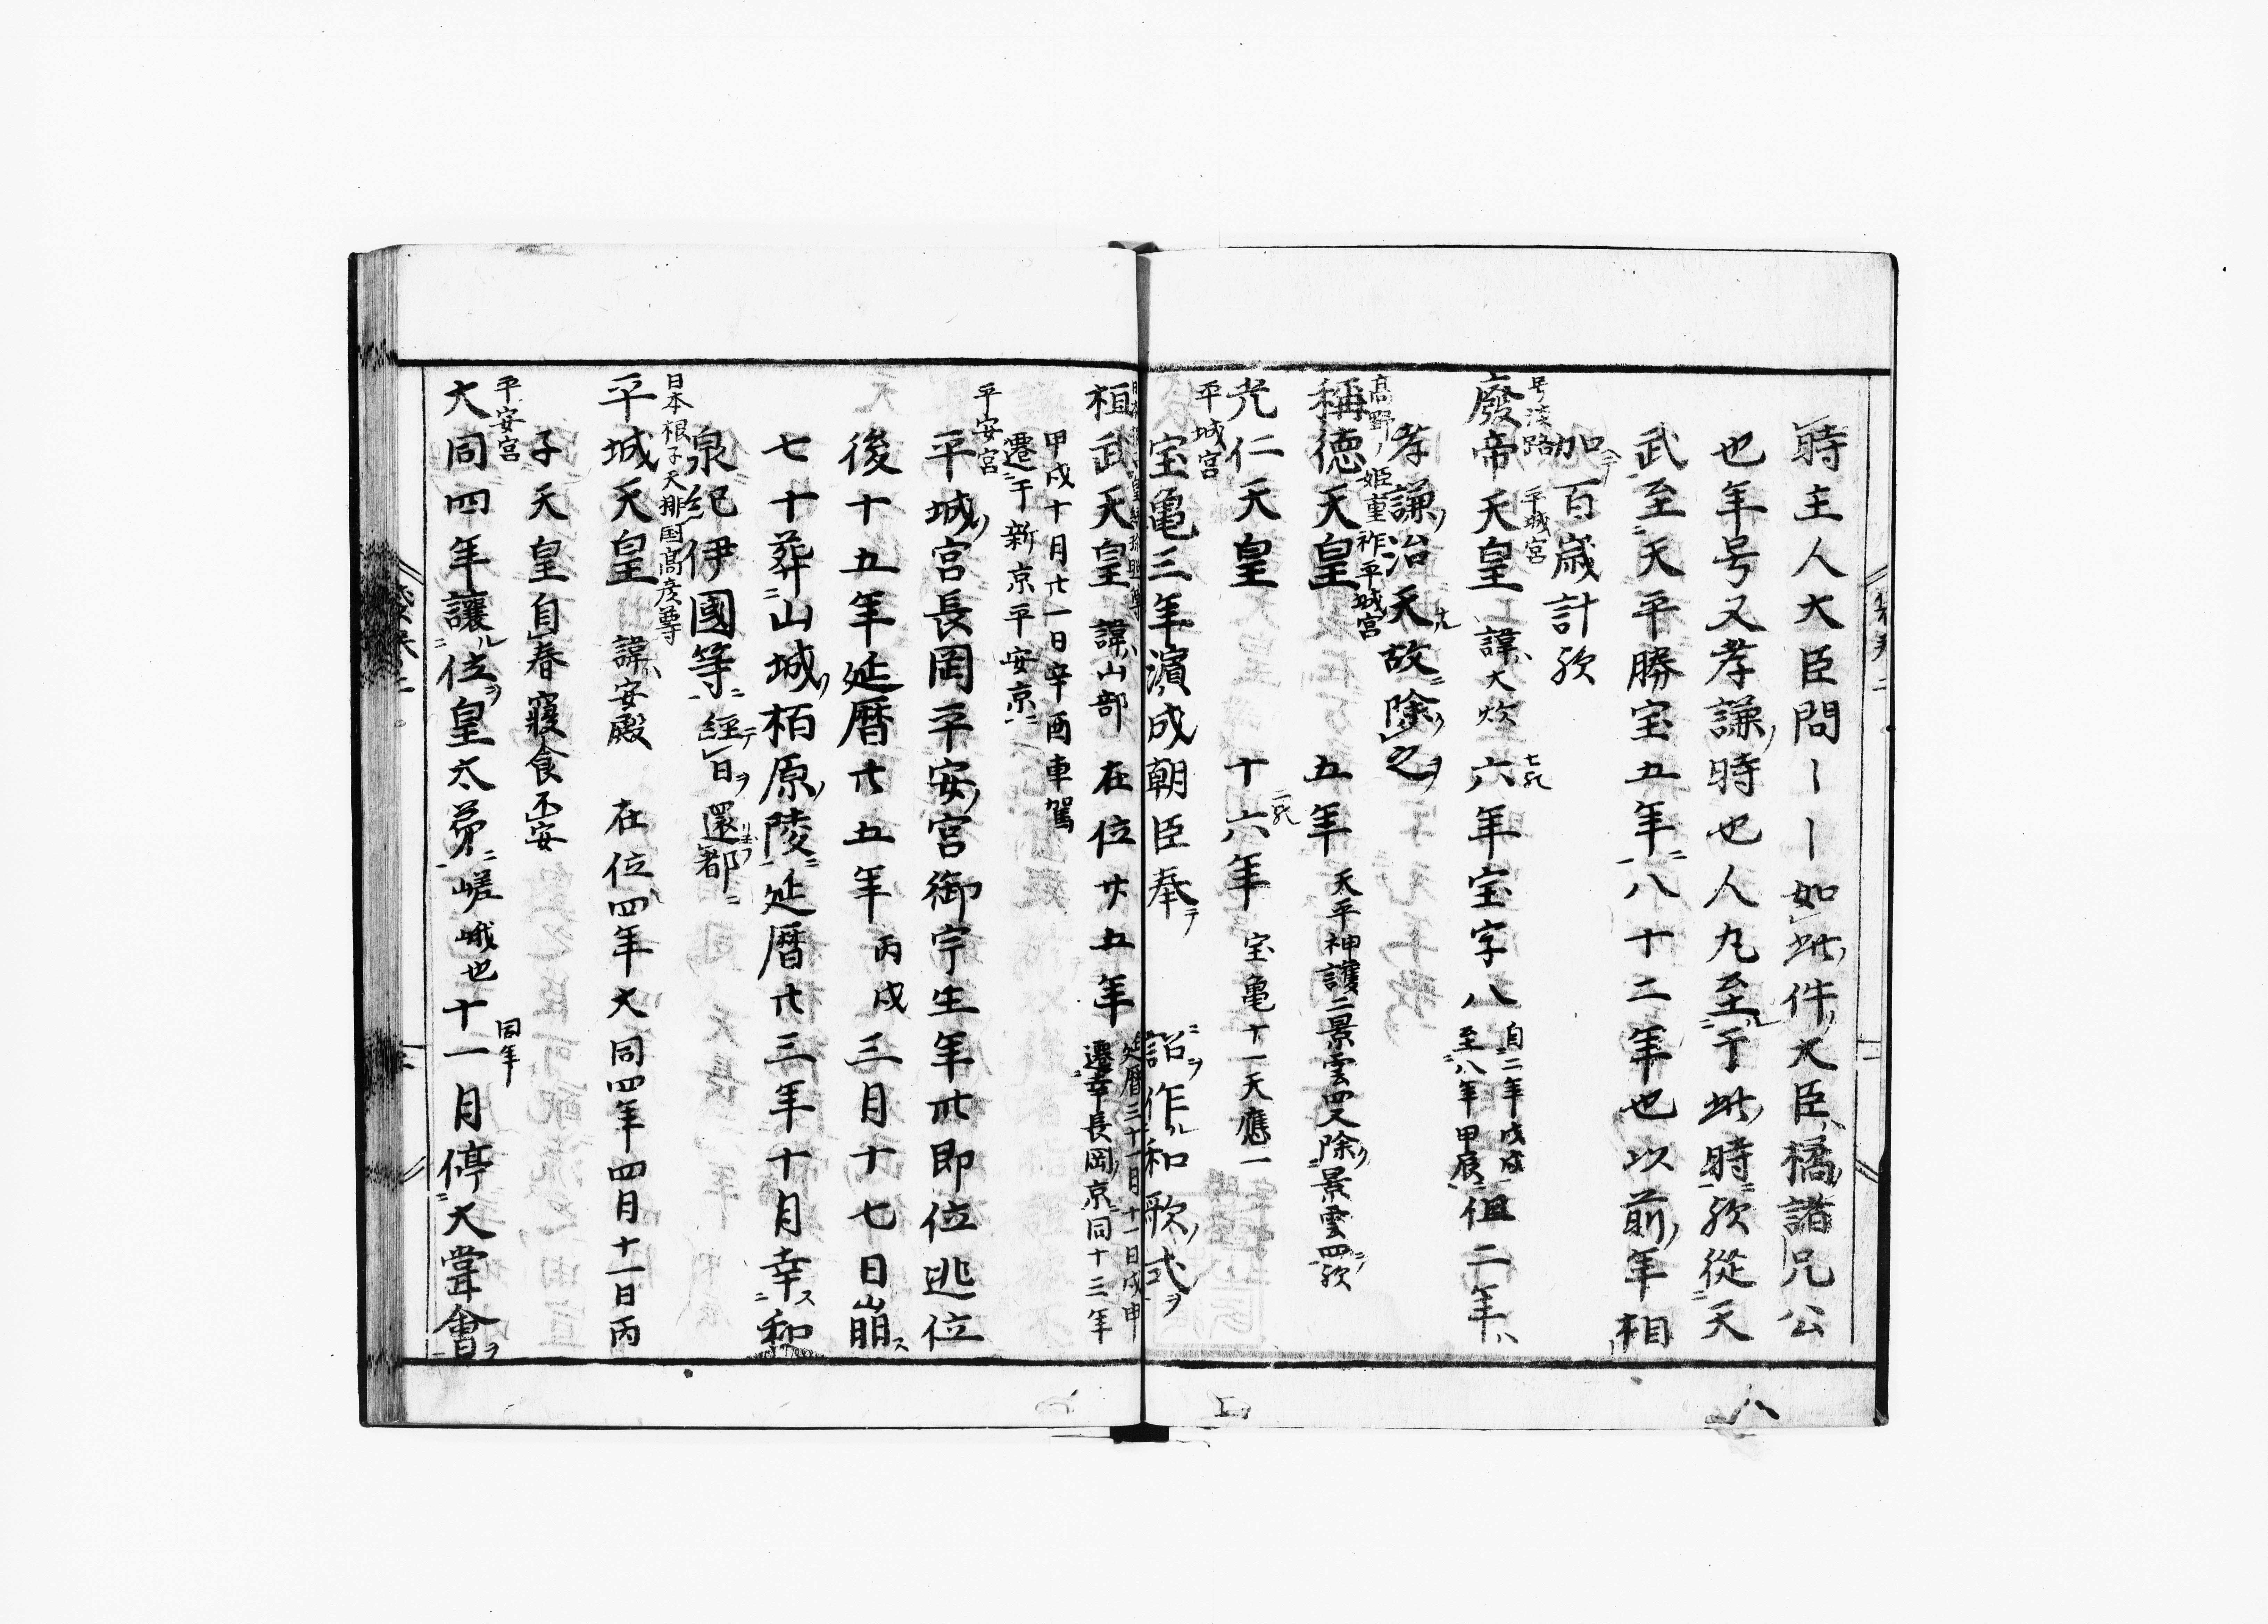 時主人大臣問〡〡如此件ノ大臣ハ橘諸兄公
也年号又孝謙ノ時也人丸至ル于此ノ時欤從天
武至天平勝宝五年ニ八十二年也以前ノ年相
加ヘテ百歳計欤
号淡路 平城宮
廢帝天皇 諱ハ大炊 六年宝字八 自二年戊戌至八年甲辰 但二年ハ
七欤
孝謙ノ治天ナル故ニ除之ヲ
高野ノ姫重祚平城宮
稱徳天皇 五年 天平神護二景雲四又除ノ景雲四ニ欤
光仁天皇 十六年 宝亀十一天應一
二欤
平城宮
宝亀三年濱成朝臣奉テ 詔ヲ作ル和歌ノ式ヲ
桓武天皇 諱ハ山部 在位廿五年 延暦三十一月十一日戊申遷幸長岡ノ京同十三年
甲戌十月廿一日辛酉車駕
遷于新京平安京ニ
平安宮
平城ノ宮長岡平安ノ宮御宇生年卌即位逃位
後十五年延暦廿五年丙戌三月十七日崩ス
七十葬山城ノ栢原ノ陵ニ延暦廿三年十月幸ス和
泉紀伊國等ニ經テ日ヲ還都ニ
日本根子天排国高彦尊
平城天皇 諱ハ安殿 在位四年大同四年四月十一日丙
子天皇自春寝食不安
平安宮
大同四年讓ル位ヲ皇太弟ニ嵯峨也十一月停大嘗會ヲ
同年